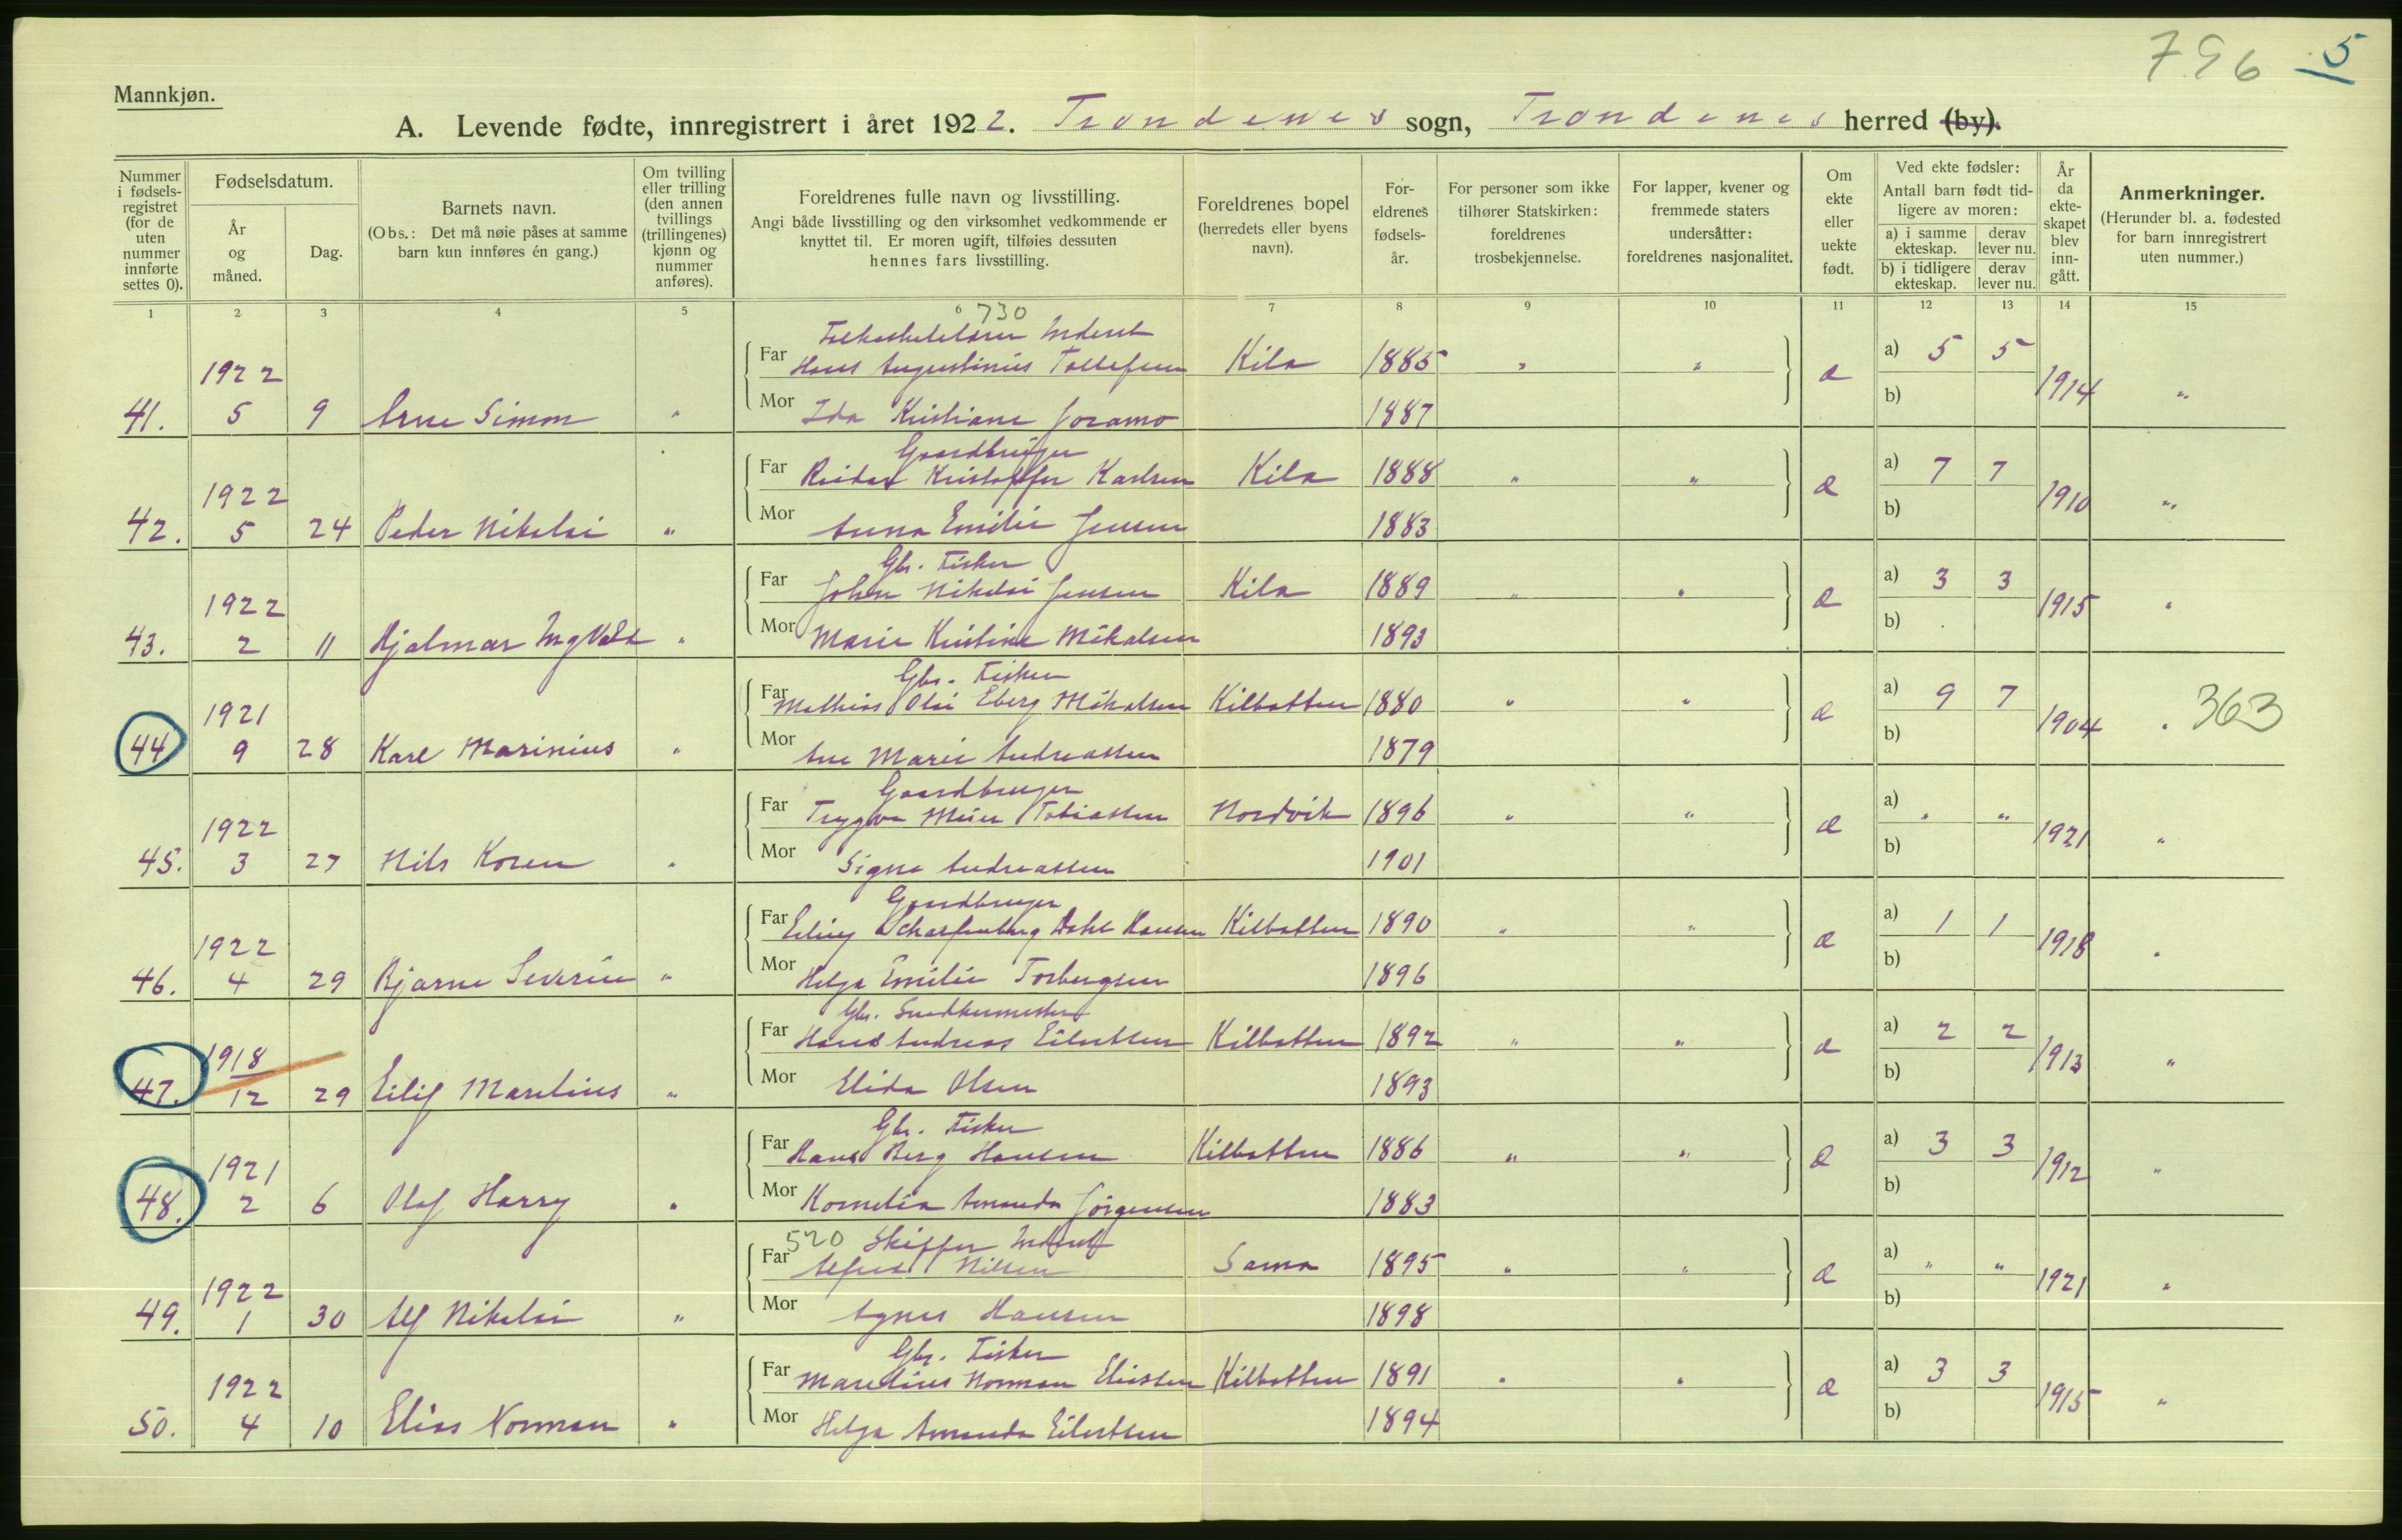 796 5
Mannkjøn.
A. Levende fødte, innregistrert i året 1922. Trondenes sogn, Trondenes herred (by).
Nummer i fødsels-registret (for de uten nummer innførte settes 0).
Fødselsdatum.
År og måned.
Dag.
Barnets navn.
(Obs.: Det må nøie påses at samme barn kun innføres én gang.)
Om tvilling eller trilling (den annen tvillings (trillingenes) kjønn og nummer anføres).
Foreldrenes fulle navn og livsstilling.
Angi både livsstilling og den virksomhet vedkommende er knyttet til. Er moren ugift, tilføies dessuten hennes fars livsstilling.
Foreldrenes bopel (herredets eller byens navn).
For-eldrenes fødsels-år.
For personer som ikke tilhører Statskirken: foreldrenes trosbekjennelse.
For lapper, kvener og fremmede staters undersåtter: foreldrenes nasjonalitet.
Om ekte eller uekte født.
Ved ekte fødsler: Antall barn født tid-ligere av moren:
a) i samme ekteskap.
derav lever nu.
b) i tidligere ekteskap.
derav lever nu.
År da ekte-skapet blev inn-gått.
Anmerkninger.
(Herunder bl. a. fødested for barn innregistrert uten nummer.)
1 2 3 4 5 6 7 8 9 10 11 12 13 14 15
730
1922
Far Hans Augustinius Tollefsen Kila 1885 " " æ a) 5 5 1914 "
41. 5 9 Arne Simon " Mor Ida Kristiane Joramo 1887 b)
Gaardbruger
1922
Far Reidar Kristoffer Karlsen Kila 1888 " " æ a) 7 7 1910 "
42. 5 24 Peder Nikolai " Mor Anna Emilie Jensen 1883 b)
Gbr. Fisker
1922
Far Johan Nikolai Jensen Kila 1889 " " æ a) 3 3 1915 "
43. 2 11 Hjalmar Ingvald " Mor Marie Kristine Mikalsen 1893 b)
Gbr. Fisker
1921
Far Mathias Olai Eberg Mikalsen Kilbotten 1880 " " æ a) 9 7 1904 " 363
44 9 28 Karl Marinius " Mor Ane Marie Andreassen 1879 b)
Gaardbruger
1922
Far Trygve Meier Tobiassen Nordvik 1896 " " æ a) " " 1921 "
45. 3 27 Nils Koren " Mor Signe Andreassen 1901 b)
Gaardbruger
1922
Far Erling Scharfenberg Dahl Hansen Kilbotten 1890 " " æ a) 1 1 1918 "
46. 4 29 Bjarne Severin " Mor Helga Emilie Torbergsen 1896 b)
Gbr. Snedkermester
1918
Far Hans Andreas Eilertsen Kilbotten 1892 " " æ a) 2 2 1913 "
47. 12 29 Eilif Marelius " Mor Elida Olsen 1893 b)
Gbr. Fisker
1921
Far Hans Berg Hansen Kilbotten 1886 " " æ a) 3 3 1912 "
48. 2 6 Olaf Harry " Mor Kornelia Amanda Jørgensen 1883 b)
520 Skipper
1922
Far Alfred Nilsen Sama 1895 " " æ a) " " 1921 "
49. 1 30 Alf Nikolai " Mor Agnes Hansen 1898 b)
Gbr. Fisker
1922
Far Marelius Norman Eliassen Kilbotten 1891 " " æ a) 3 3 1915 "
50. 4 10 Elias Norman " Mor Helga Amanda Eilertsen 1894 b)